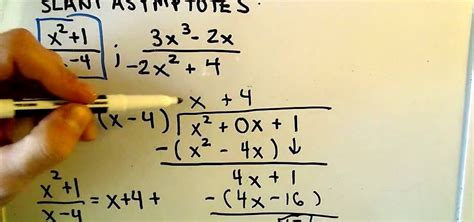 SLANT ASYMPTOTES:
x²+1 / x-4 ; 3x³-2x / -2x²+4
x + 4
(x-4) x² + 0x + 1
-(x² - 4x) ↓
4x + 1
-(4x-16)
x²+1 / x-4 = x+4+